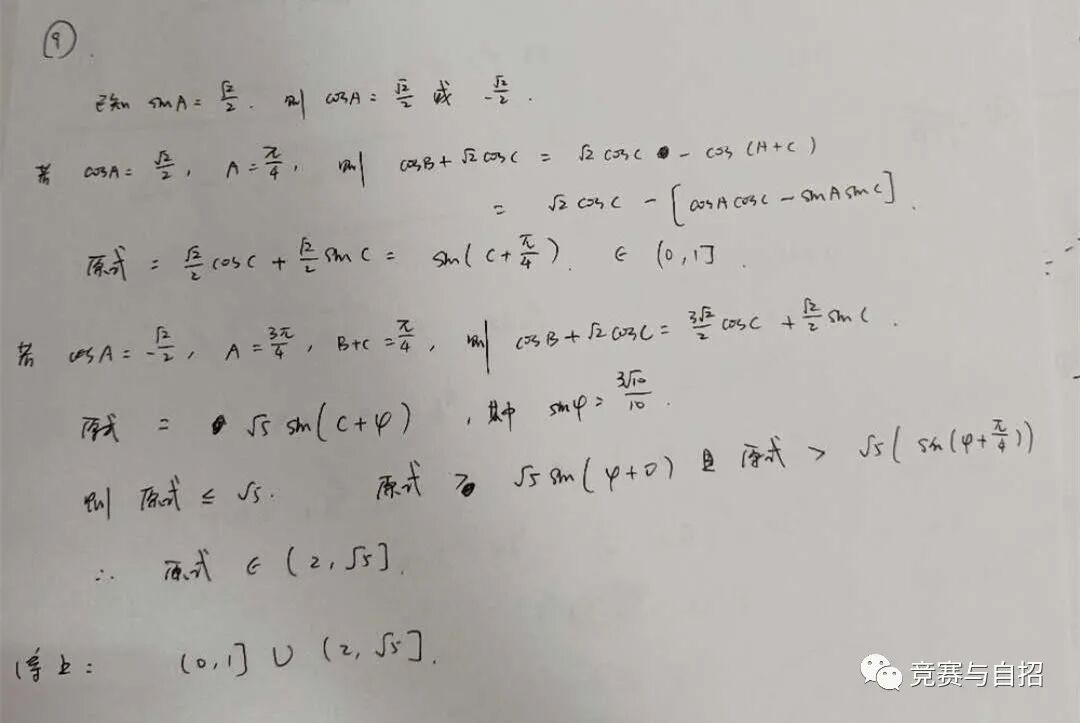 ⑨.
已知 sinA = √2/2. 则 cosA = √2/2 或 -√2/2.
若 cosA = √2/2, A = π/4, 则 cosB + √2 cosC = √2 cosC - cos(A+C)
= √2 cosC - [cosAcosC - sinAsinC].
原式 = √2/2 cosC + √2/2 sinC = sin(C + π/4). ∈ (0,1].
若 cosA = -√2/2, A = 3π/4, B+C = π/4, 则 cosB + √2 cosC = 3√2/2 cosC + √2/2 sinC.
原式 = √5 sin(C+φ), 其中 sinφ = 3√10/10.
则 原式 ≤ √5. 原式 > √5 sin(φ+0) 且 原式 > √5(sin(φ+π/4))
∴ 原式 ∈ (2, √5].
综上: (0,1] ∪ (2, √5].
竞赛与自招